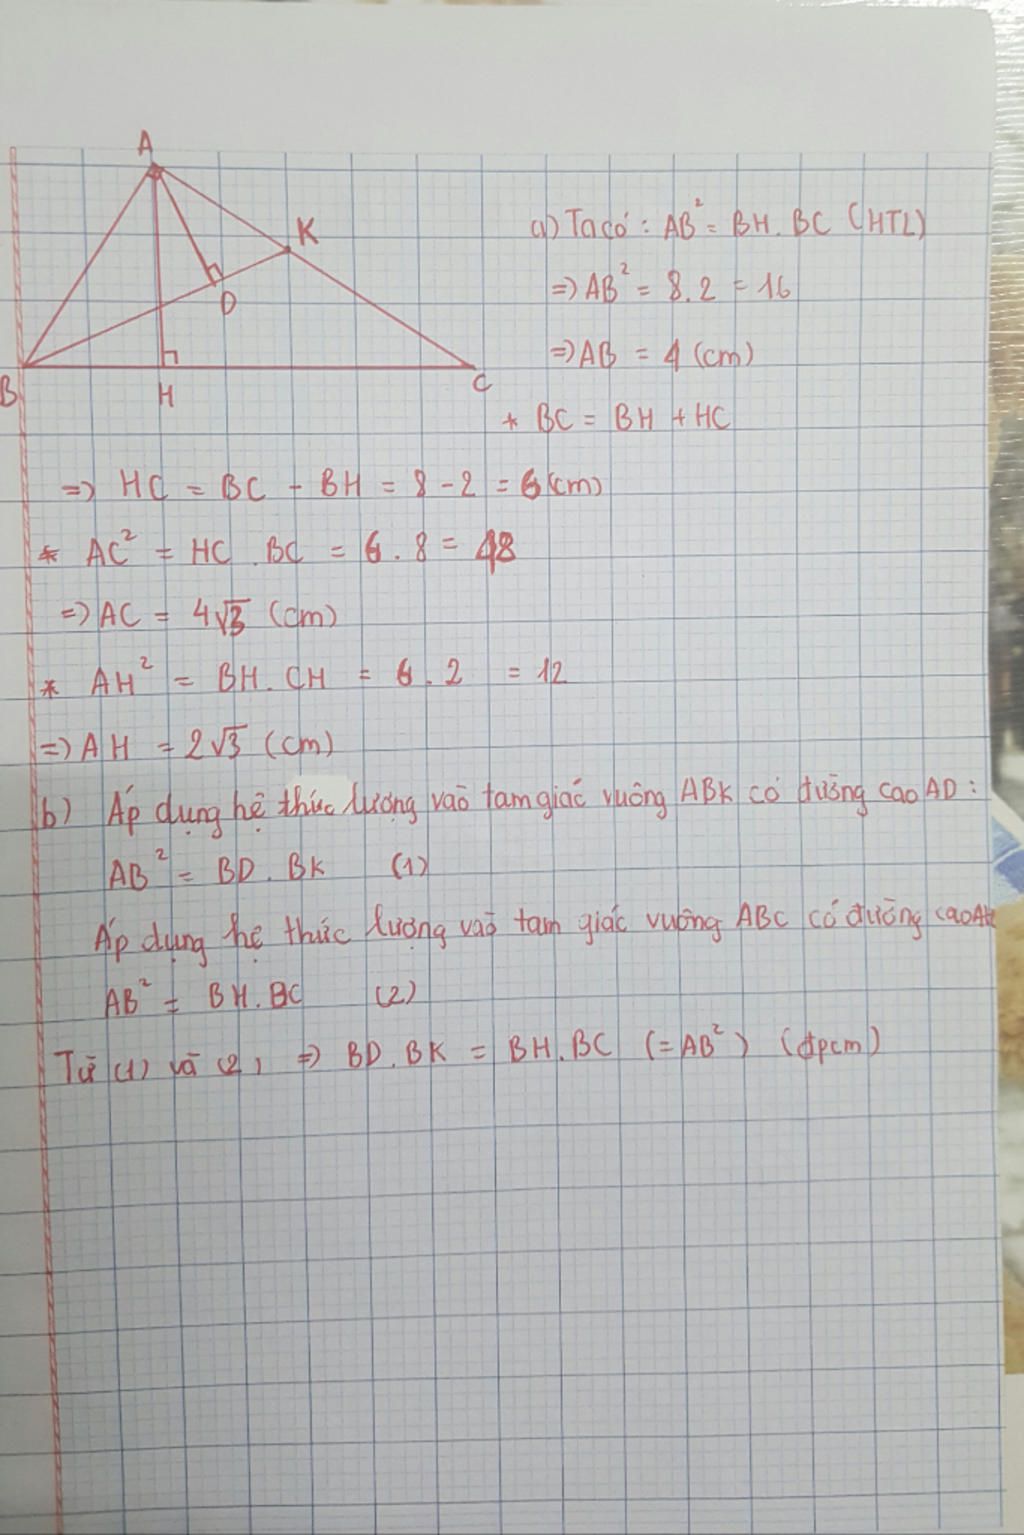 A
K
D
B
H
C
a) Ta có : AB² = BH . BC (HTL)
=> AB² = 8 . 2 = 16
=> AB = 4 (cm)
* BC = BH + HC
=> HC = BC - BH = 8 - 2 = 6 (cm)
* AC² = HC . BC = 6 . 8 = 48
=> AC = 4√3 (cm)
* AH² = BH . CH = 6 . 2 = 12
=> AH = 2√3 (cm)
b) Áp dụng hệ thức lượng vào tam giác vuông ABK có đường cao AD :
AB² = BD . BK (1)
Áp dụng hệ thức lượng vào tam giác vuông ABC có đường cao AH
AB² = BH . BC (2)
Từ (1) và (2) => BD . BK = BH . BC (= AB²) (đpcm)